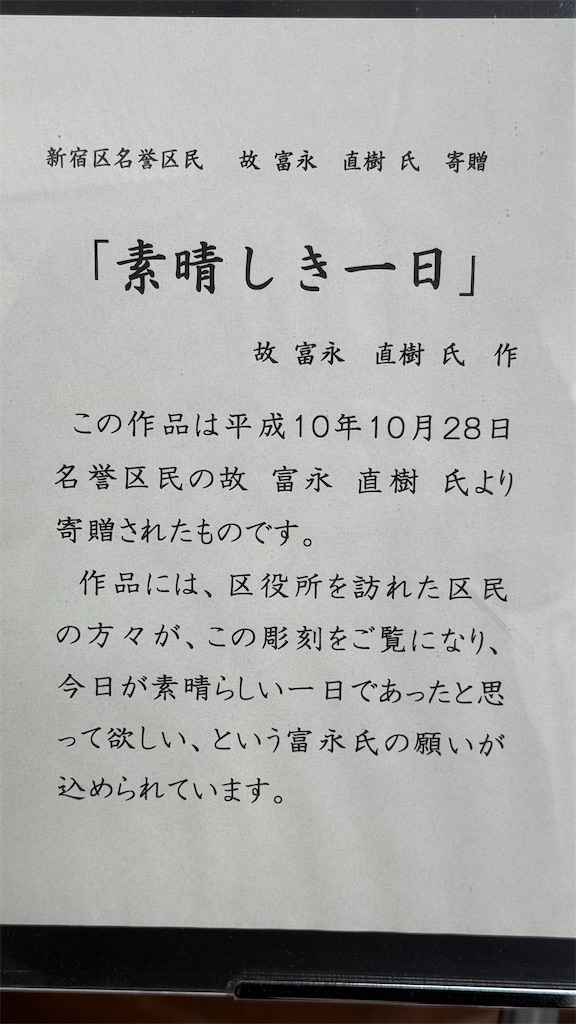 新宿区名誉区民　故 富永　直樹 氏　寄贈
「素晴しき一日」
故 富永　直樹 氏　作
この作品は平成10年10月28日
名誉区民の故 富永 直樹 氏より
寄贈されたものです。
作品には、区役所を訪れた区民
の方々が、この彫刻をご覧になり、
今日が素晴らしい一日であったと思
って欲しい、という富永氏の願いが
込められています。